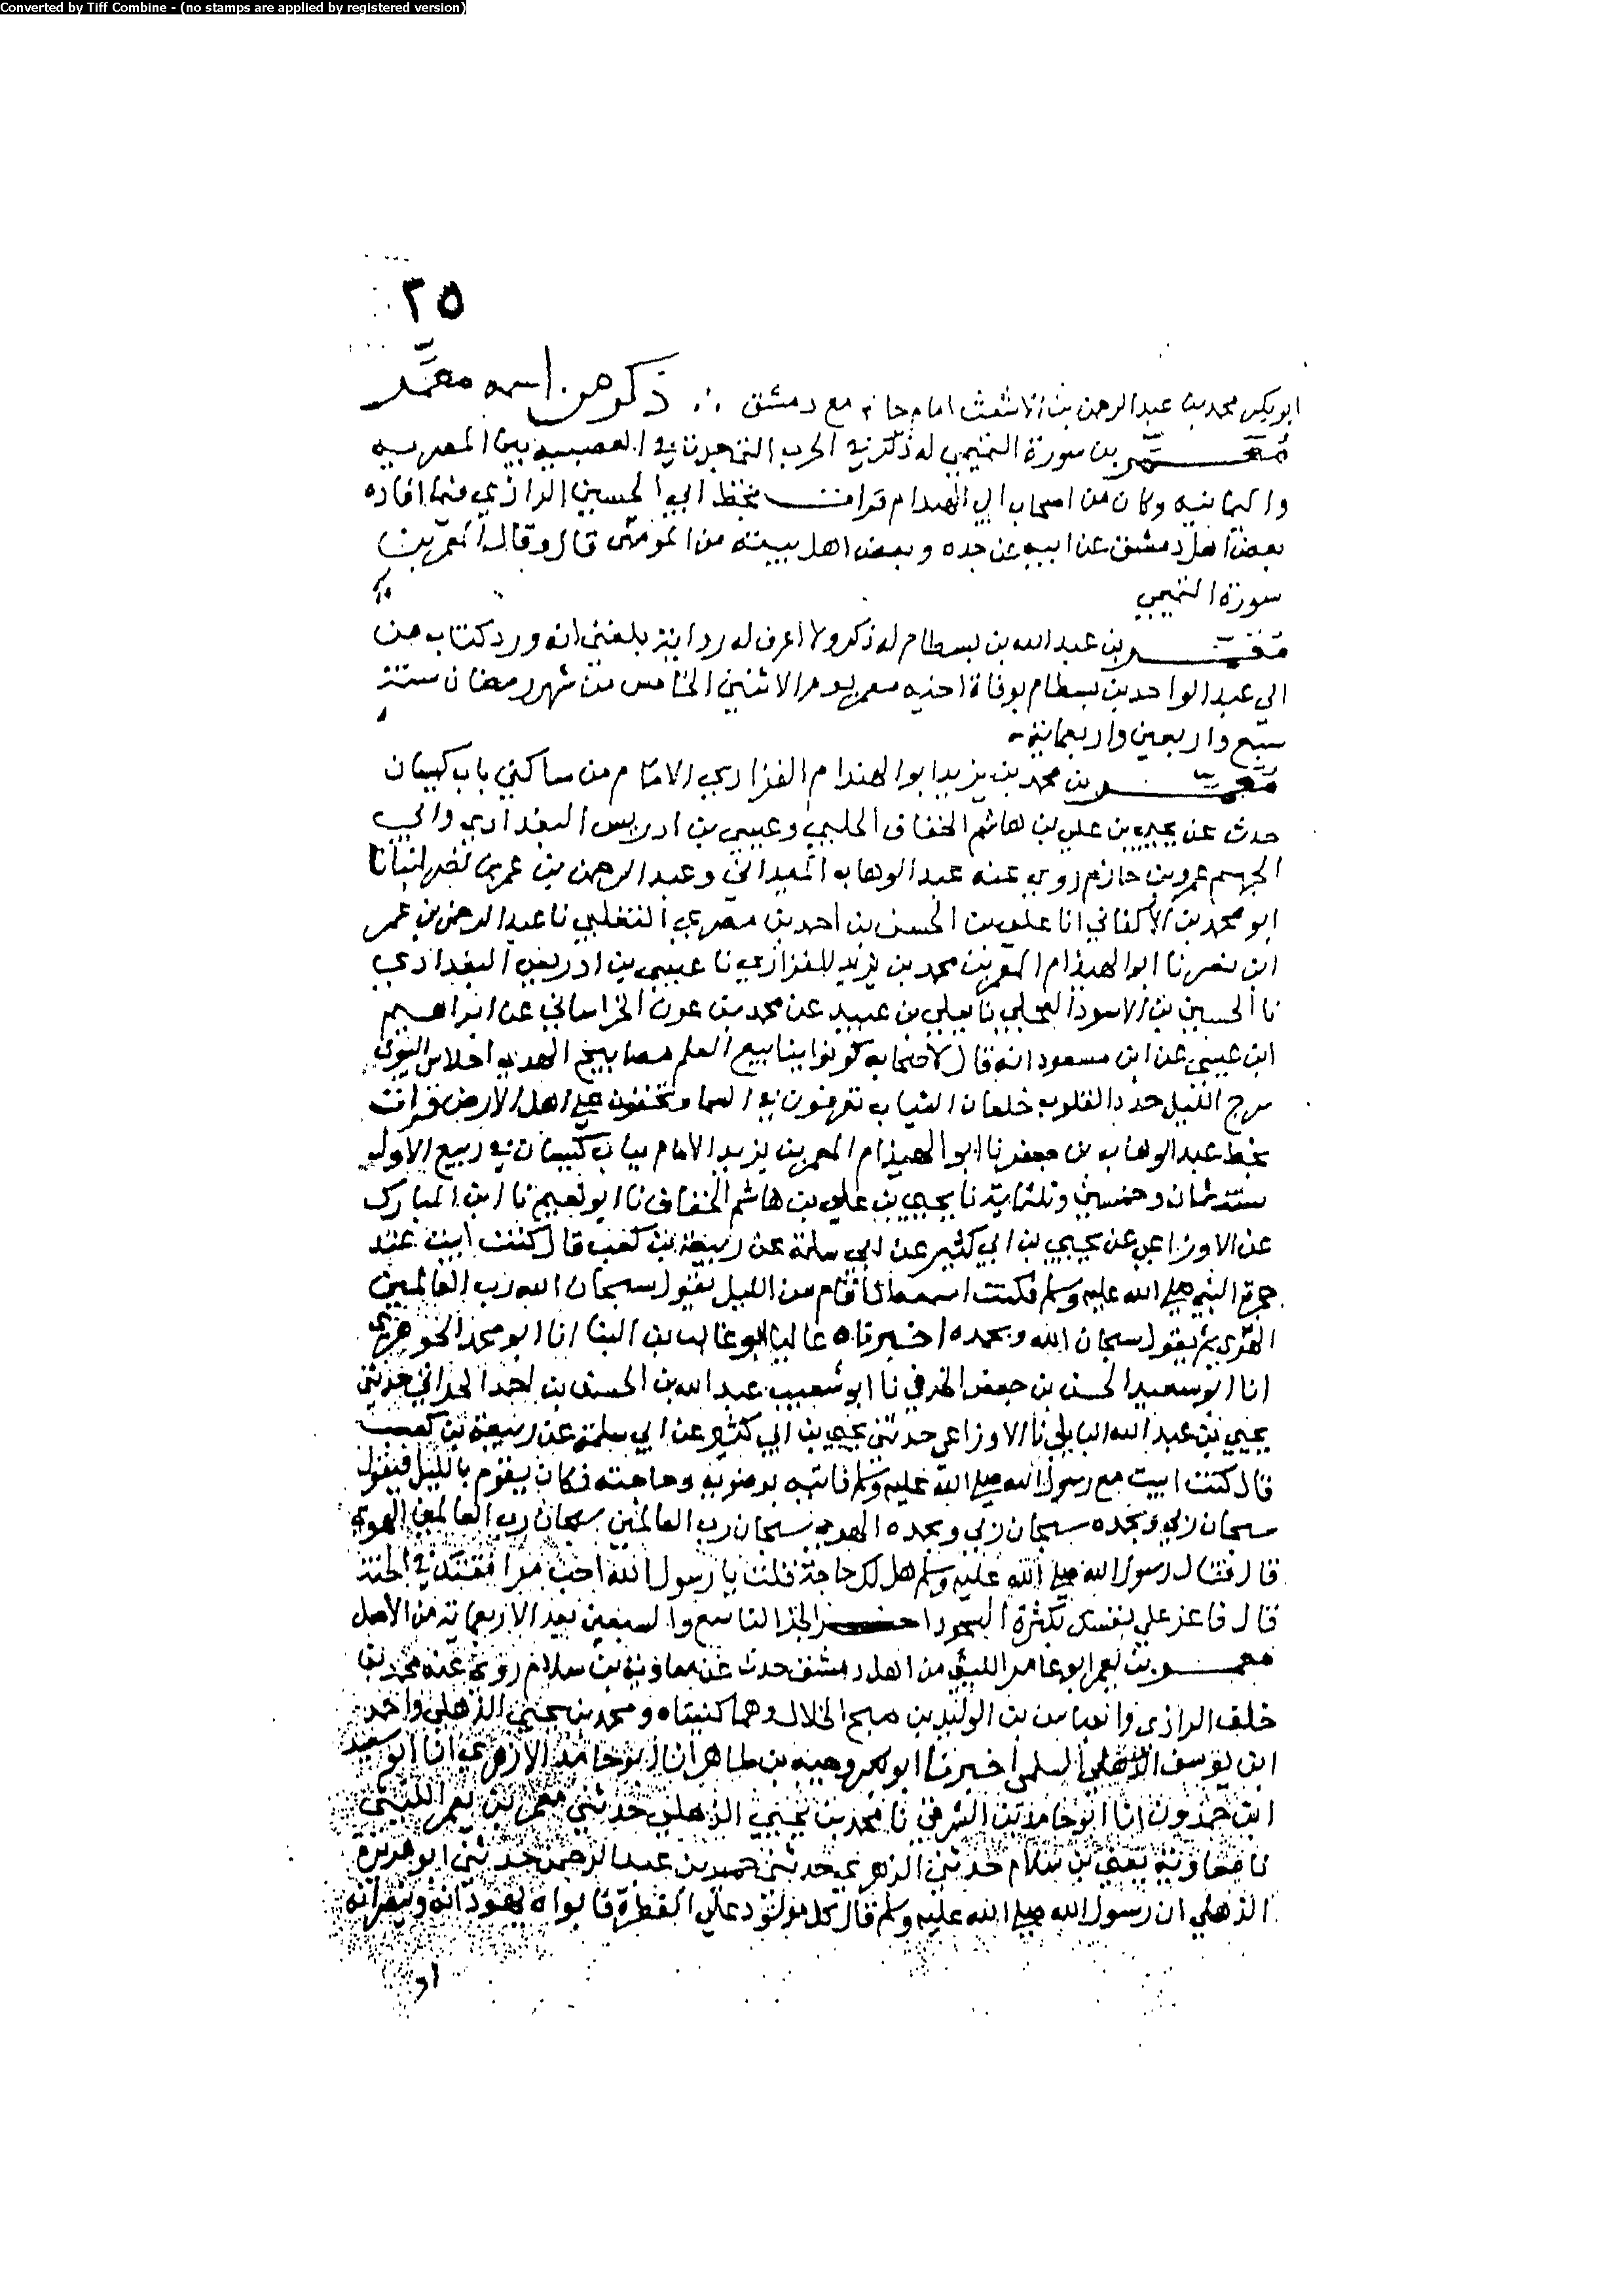 Converted by Tiff Combine - (no stamps are applied by registered version)
٢٥
ابو بكر محمد بن عبد الرحمن بن الاشعث امام جامع دمشق ∴ ذكر من اسمه معمر
معمر بن سورة التميمي له ذكر في الحرب التي جرت في العصبية بين المضرية
واليمانية وكان من اصحاب ابي الهيذام قرات بخط ابي الحسين الرازي فيما افاده
بعض اهل دمشق عن ابيه عن جده وبعض اهل بيته من المومنين قال وقال المعمر بن
سورة التميمي
معمر بن عبد الله بن بسطام له ذكر ولا اعرف له رواية بلغني انه ورد كتاب من
الي عبد الواحد بن بسطام بوفاة اخيه معمر يوم الاثنين الخامس من شهر رمضان سنة
سبع واربعين واربعمائة
معمر بن محمد بن يزيد ابو الهيذام الفزاري الامام من ساكني باب كيسان
حدث عن يحيي بن علي بن هاشم الخفاف الحلبي وعيسي بن ادريس البغدادي وابي
الجهم عمرو بن حازم روي عنه عبد الوهاب الميداني وعبد الرحمن بن عمر بن نصر انبانا
ابو محمد بن الاكفاني انا علي بن الحسن بن احمد بن مصري التغلبي نا عبد الرحمن بن عمر
ابن نصر نا ابو الهيذام المعمر بن محمد بن يزيد الفزاري نا عيسي بن ادريس البغدادي
نا الحسين بن الاسود العجلي نا يعلي بن عبيد عن محمد بن عون الخراساني عن ابراهيم
ابن عيسي عن ابن مسعود انه قال لاصحابه كونوا ينابيع العلم مصابيح الهدي احلاس البيوت
سرج الليل جدد القلوب خلقان الثياب تعرفون في السما وتخفون علي اهل الارض قرات
بخط عبد الوهاب بن جعفر نا ابو الهيذام المعمر بن يزيد الامام بباب كيسان في ربيع الاول
سنة ثمان وخمسين وثلثماية نا يحيي بن علي بن هاشم الخفاف نا ابو نعيم نا ابن المبارك
عن الاوزاعي عن يحيي بن ابي كثير عن ابي سلمة عن ربيعة بن كعب قال كنت ابيت عند
حجرة النبي صلي الله عليه وسلم فكنت اسمعه اذا قام من الليل يقول سبحان الله رب العالمين
الهوي ثم يقول سبحان الله وبحمده اخبرناه عاليا ابو غالب بن البنا انا ابو محمد الجوهري
انا ابو سعيد الحسن بن جعفر الحرفي نا ابو شعيب عبد الله بن الحسن بن احمد الحراني حدثني
يحيي بن عبد الله البابلي نا الاوزاعي حدثني يحيي بن ابي كثير عن ابي سلمة عن ربيعة بن كعب
قال كنت ابيت مع رسول الله صلي الله عليه وسلم فاتيه بوضويه وحاجته فكان يقوم بالليل فيقول
سبحان ربي وبحمده سبحان ربي وبحمده الهوي سبحان رب العالمين سبحان رب العالمين الهوي
قال فقال رسول الله صلي الله عليه وسلم هل لك حاجة فقلت يا رسول الله احب مرافقتك في الجنة
قال فاعني علي نفسك بكثرة السجود اخر الجز التاسع والسبعين بعد الاربعماية من الاصل
معمر بن يعمر ابو عامر الليثي من اهل دمشق حدث عن معاوية بن سلام روي عنه محمد بن
خلف الرازي والعباس بن الوليد بن صبح الخلال وهما كنياه ومحمد بن يحيي الذهلي واحمد
ابن يوسف السلمي اخبرنا ابو بكر وجيه بن طاهر انا ابو حامد الازهري انا ابو سعيد
ابن حمدون انا ابو حامد بن الشرقي نا محمد بن يحيي الذهلي حدثني معمر بن يعمر الليثي
نا معاوية يعني بن سلام حدثني الزهري حدثني حميد بن عبد الرحمن حدثني ابو هريرة
الذهلي ان رسول الله صلي الله عليه وسلم قال كل مولود علي الفطرة فابواه يهودانه وينصرانه
او